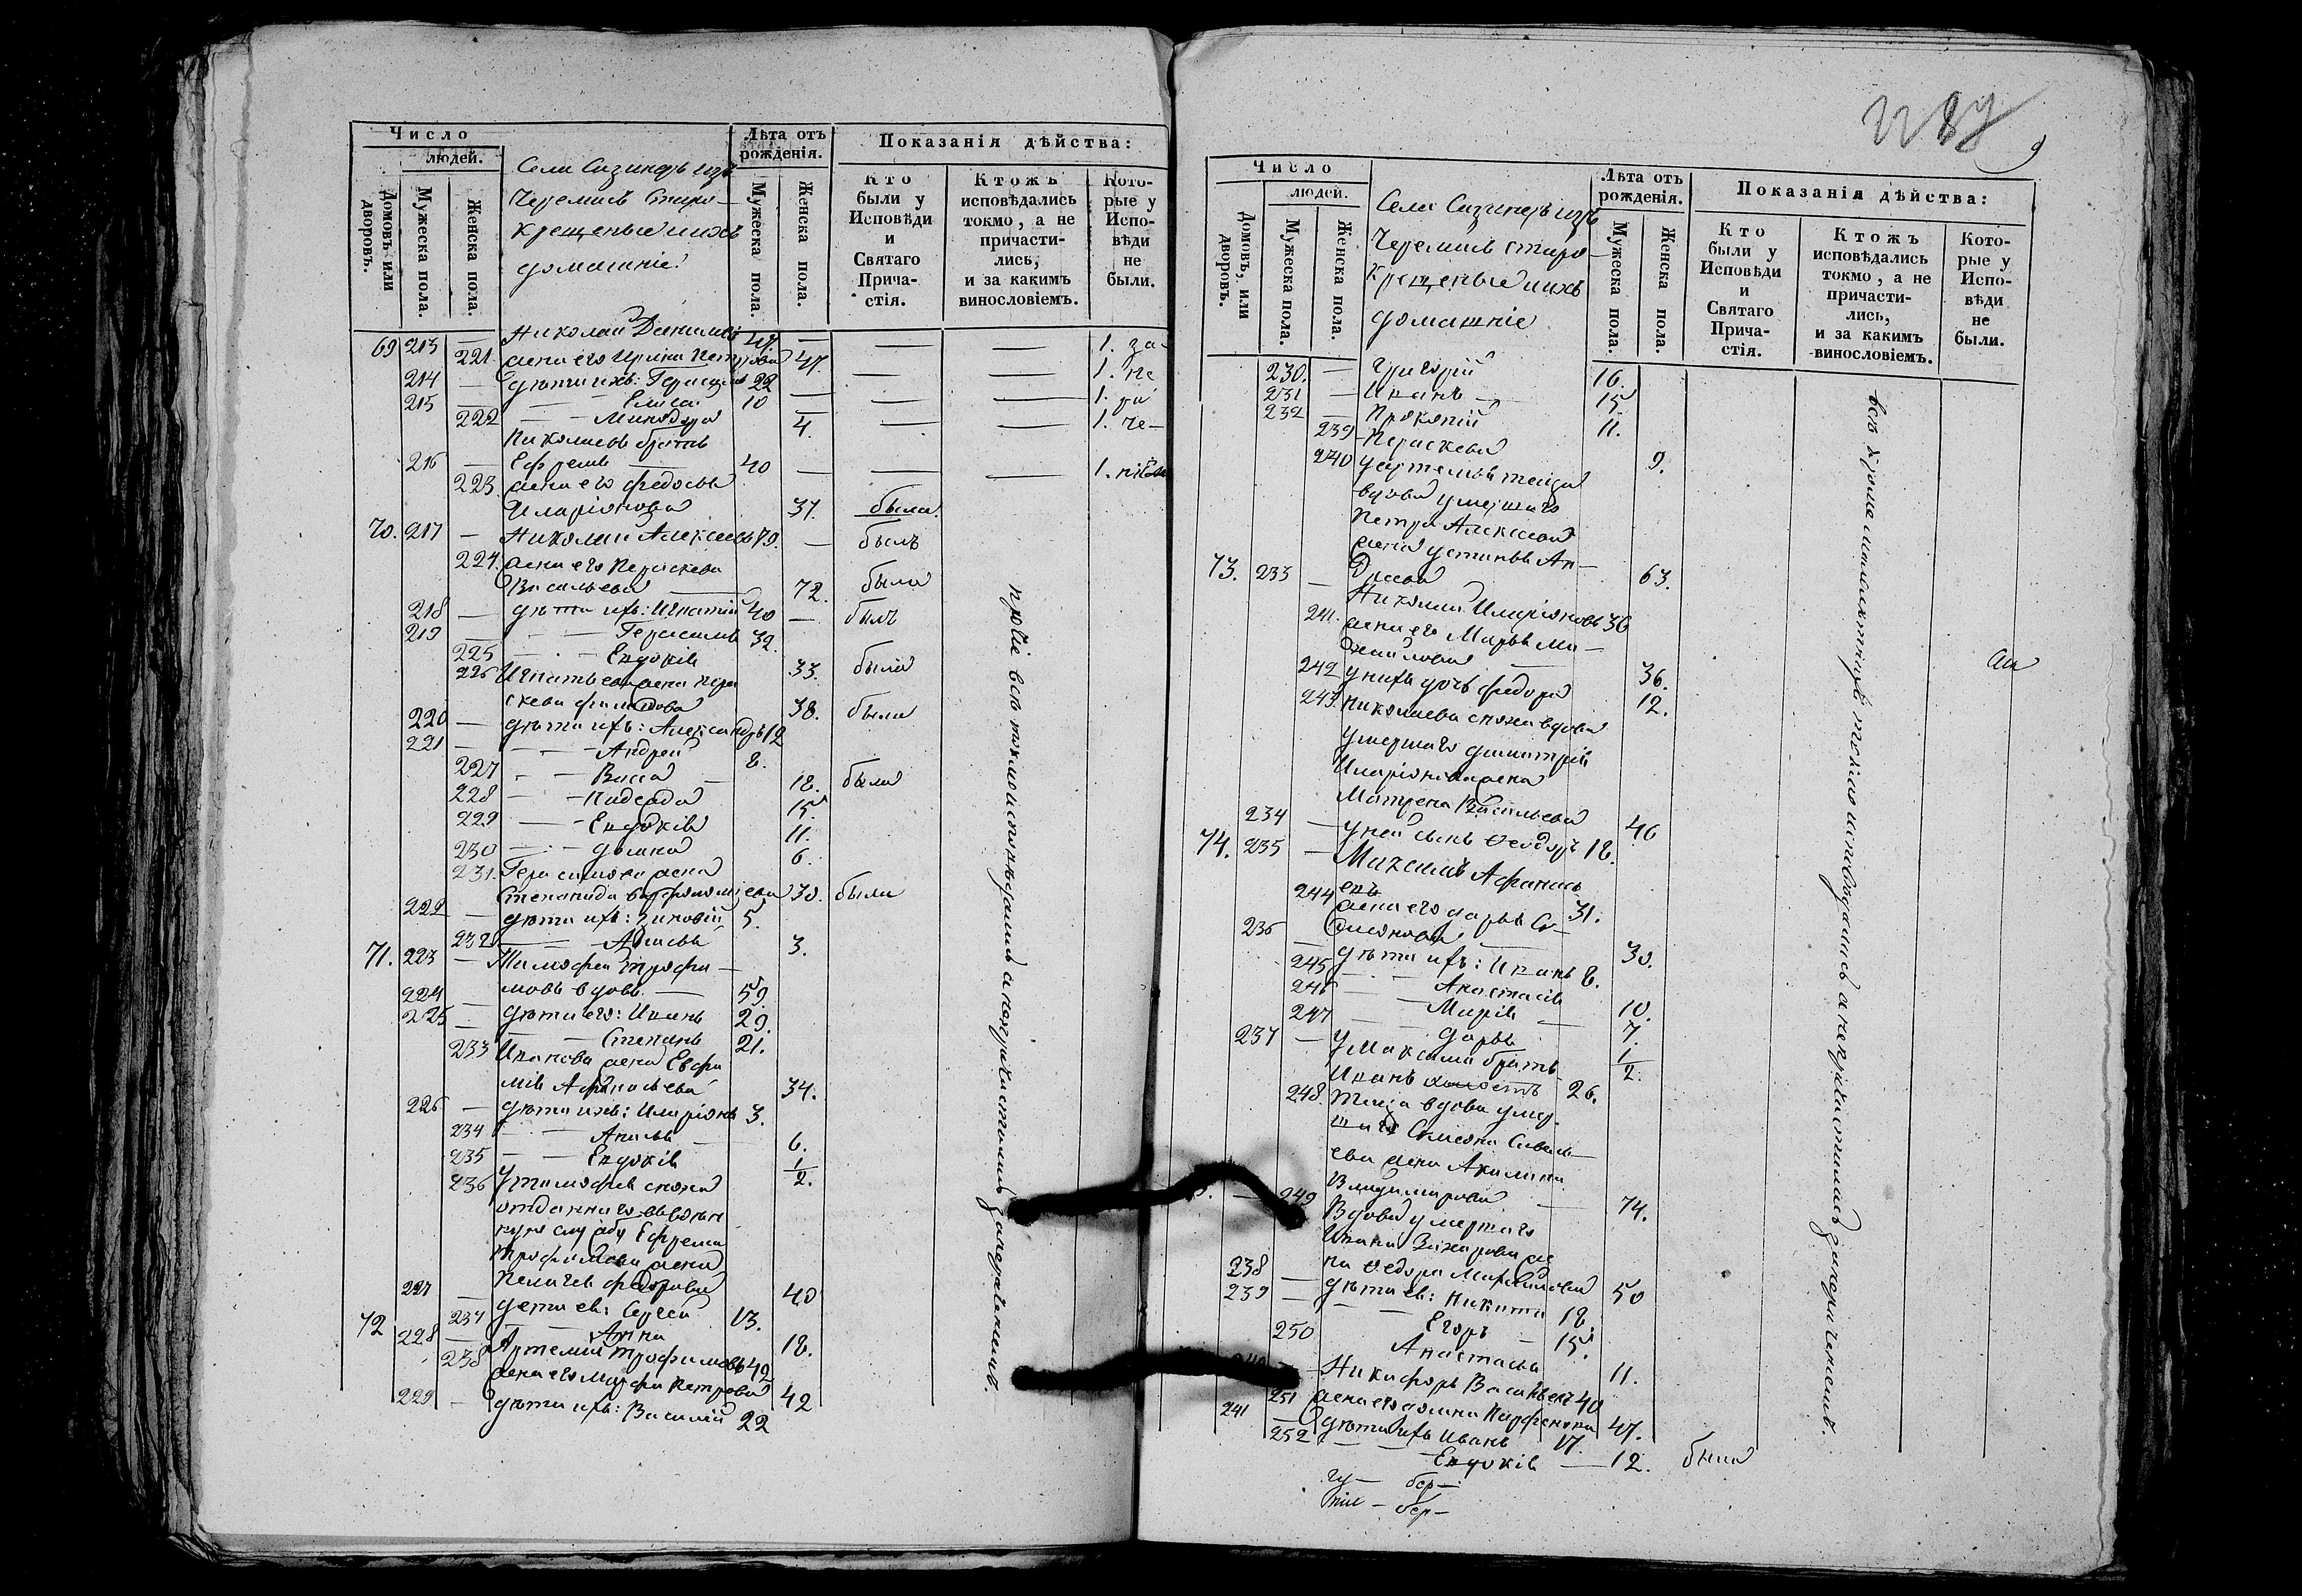 Число
людей.
Домовъ или дворовъ.
Мужеска пола.
Женска пола.
Села Сизинеръ изъ
Черемисъ Старо-
крещеные и ихъ
домашніе.
Лѣта отъ рожденія.
Мужеска пола.
Женска пола.
Показанія дѣйства:
Кто были у Исповѣди и Святаго Прича-стія.
Ктожъ исповѣдались токмо, а не причасти-лись, и за какимъ винословіемъ.
Кото-рые у Испо-вѣди не были.
69 213 — Николай Даниловъ 49. — — — 1. за-
221 жена его Ирина Петрова 47. — — 1. не
214 — дѣти ихъ: Герасимъ 22 — — — 1.
215 — Елисей 10 — — — 1. че-
222 — Минодора 4.
Николаевъ братъ
216 — Ефремъ 40 — — — 1.
223. жена его Федосья
Иларіонова 37. была.
70. 217 — Николай Алексеевъ 79. — былъ
224. жена его Параскева
Васильева 72. была
218 — дѣти ихъ: Игнатій 40 — былъ
219 — Герасимъ 32.
225 — Евдокія 33. была
226 Игнатьева жена Пара
скева 38. была
220 — дѣти ихъ: Александръ 12
221 — Андрей 8.
227 — Васса 18. была
228 — 15.
229 — Евдокія 11.
230 — Домна 6.
231. Герасимова жена
Степанида Варфоломеева 30. была
222 — дѣти ихъ: Зиновій 5.
232 — 3.
71. 223 — Тимофей Трофи-
мовъ вдовъ 59.
224 — дѣти его: Иванъ 29.
225 — Степанъ 21.
233 Иванова жена Евфи
мія Афанасьева 34.
226 — дѣти ихъ: Иларіонъ 3.
234 — 6.
235 — Евдокія 1/2.
236 У Тимофея сноха
отданнаго въ воен
ную службу Ефрема
Трофимова жена
Пелагея Федорова 40
227 — дети ея: Сергей 13.
237 — Анна 18.
72 228 — Артемій Трофимовъ 42
238 жена его Марфа Петрова 42
229 — дѣти ихъ: Василій 22
прочіе всѣ токмо исповѣдались а непричастились за нераченіемъ.
9
Число
людей.
Домовъ, или дворовъ.
Мужеска пола.
Женска пола.
Села Сизинеръ изъ
Черемисъ старо-
крещеные и ихъ
домашніе
Лѣта отъ рожденія.
Мужеска пола.
Женска пола.
Показанія дѣйства:
Кто были у Исповѣди и Святаго Прича-стія.
Ктожъ исповѣдались токмо, а не причасти-лись, и за какимъ винословіемъ.
Кото-рые у Испо-вѣди не были.
230. — Григорій 16.
231 — Иванъ 15.
232 — Прокопій 11.
239 Параскева 9.
240 У Артемья теща
вдова умершаго
Петра Алексеева
жена Устинья Ан-
дреева 63.
73. 233 — Николай Иларіоновъ 36
241. жена его Марья Ми-
хайлова 36.
242 У нихъ дочь Федора 12.
243. Николаева сноха вдова
умершаго Димитрія
Иларіонова жена
Матрена Васильева 46
234 — У ней сынъ Ѳеодоръ 18.
74. 235 — Максимъ Афанась
евъ 31.
244 жена его Дарья Се-
меонова 30.
236 — дѣти ихъ: Иванъ 8.
245 — Анастасія 10.
246 — Марія 7.
247 — Дарья 1/2.
237 — У Максима братъ
Иванъ холостъ 26.
248. Теща вдова умер
шаго Семеона Савель-
ева жена Акилина
Владимирова 74.
— 249 Вдова умершаго
Ивана Захарова же
на Ѳедора 50
238 — дѣти ея: Никита 18.
239 — Егоръ 15.
250 Анастасья 11.
Никифоръ Васильевъ 40
251 жена его Домна Парфенова 47.
241 — дѣти ихъ Иванъ 17.
252 — Евдокія 12. была
всѣ кроме малолѣтныхъ токмо исповѣдались а непричастились за нераченіемъ.